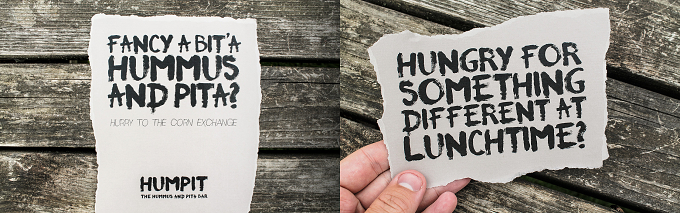 FANCY A BIT'A
HUMMUS
AND PITA?
HURRY TO THE CORN EXCHANGE
HUMPIT
THE HUMMUS AND PITA BAR
HUNGRY FOR
SOMETHING
DIFFERENT AT
LUNCHTIME?